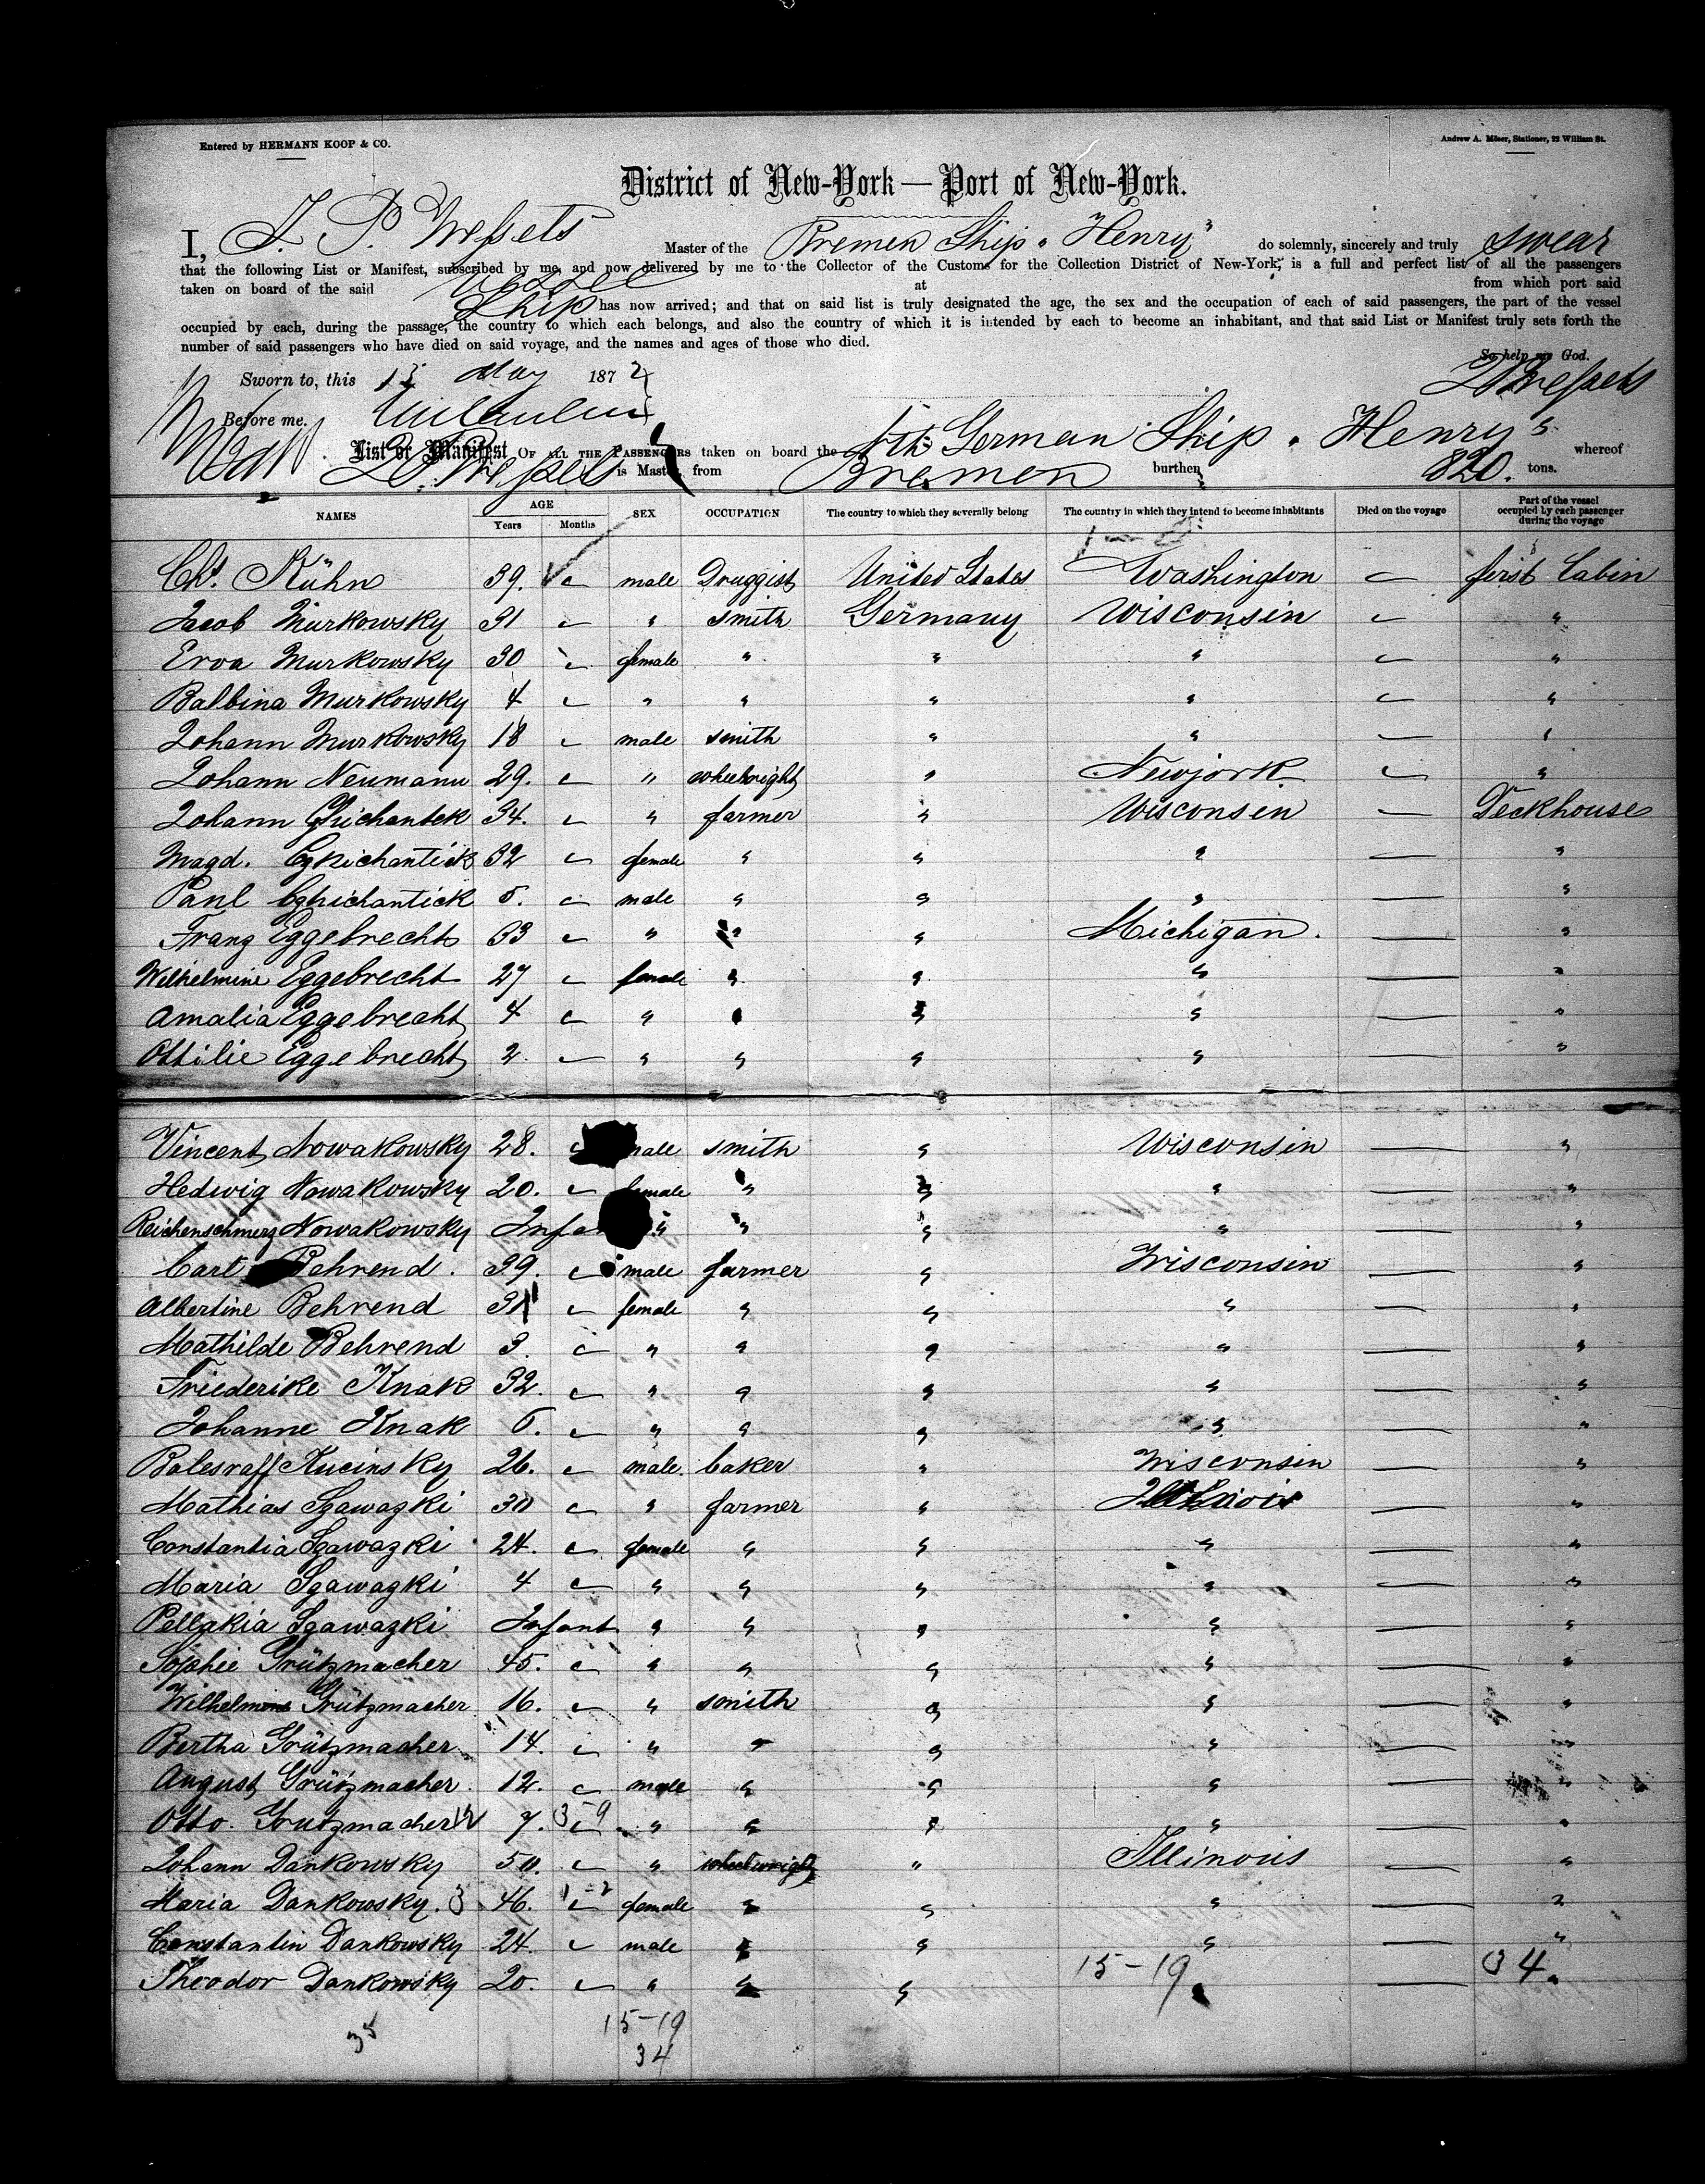 Entered by HERMANN KOOP & CO.
Andrew A. Möser, Stationer, 22 William St.
District of New-York — Port of New-York.
I, Wessels Master of the Bremen Ship "Henry" do solemnly, sincerely and truly swear
that the following List or Manifest, subscribed by me, and now delivered by me to the Collector of the Customs for the Collection District of New-York, is a full and perfect list of all the passengers
taken on board of the said Vessel at from which port said
Ship has now arrived; and that on said list is truly designated the age, the sex and the occupation of each of said passengers, the part of the vessel
occupied by each, during the passage, the country to which each belongs, and also the country of which it is intended by each to become an inhabitant, and that said List or Manifest truly sets forth the
number of said passengers who have died on said voyage, and the names and ages of those who died.
So help me God.
Sworn to, this May 187
Wessels
Before me.
List or Manifest OF ALL THE PASSENGERS taken on board the German Ship "Henry" whereof
Wessels is Master, from Bremen burthen 820. tons.
NAMES AGE Years Months SEX OCCUPATION The country to which they severally belong The country in which they intend to become inhabitants Died on the voyage Part of the vessel occupied by each passenger during the voyage
Chs. Kühn 39. male Druggist United States Washington first Cabin
Jacob Murkowsky 31 " smith Germany Wisconsin "
Erva Murkowsky 30 female " " " "
Balbina Murkowsky 4 " " " " "
Johann Murkowsky 18 male smith " " "
Johann Neumann 29. " wheelwright " Newjork "
Johann 34. " farmer " Wisconsin Deckhouse
Magd. 32 female " " " "
Paul 5. male " " " "
Franz Eggebrecht 33 " " " Michigan. "
Wilhelmine Eggebrecht 27 female " " " "
Amalia Eggebrecht 4 " " " " "
Ottilie Eggebrecht 2. " " " " "
Vincent Nowakowsky 28. male smith " Wisconsin "
Hedwig Nowakowsky 20. female " " " "
Reichenschmerz Nowakowsky Infant " " " " "
Carl Behrend. 39. male farmer " Wisconsin "
Albertine Behrend 31 female " " " "
Mathilde Behrend 3. " " " " "
Friederike Knak 32. " " " " "
Johanne Knak " " " " "
Kucinsky 26. male. baker " Wisconsin "
Mathias Sgawazki 30 " farmer " Illinois "
Constantia Sgawazki 24. female " " " "
Maria Sgawazki 4 " " " " "
Pellakia Sgawazki Infant " " " " "
Sophie Grützmacher 45. " " " " "
Wilhelmine Grützmacher 16. " smith " " "
Bertha Grützmacher 14. " " " " "
August Grützmacher. 12. male " " " "
Otto. Grutzmacher 7. 3-9 " " " " "
Johann Dankowsky 50. " wheelwright " Illinois "
Maria Dankowsky. 3 46. 1-2 female " " " "
Constantin Dankowsky 24. male " " " "
Theodor Dankowsky 20. " " " 15-19 34.
35
15-19
34